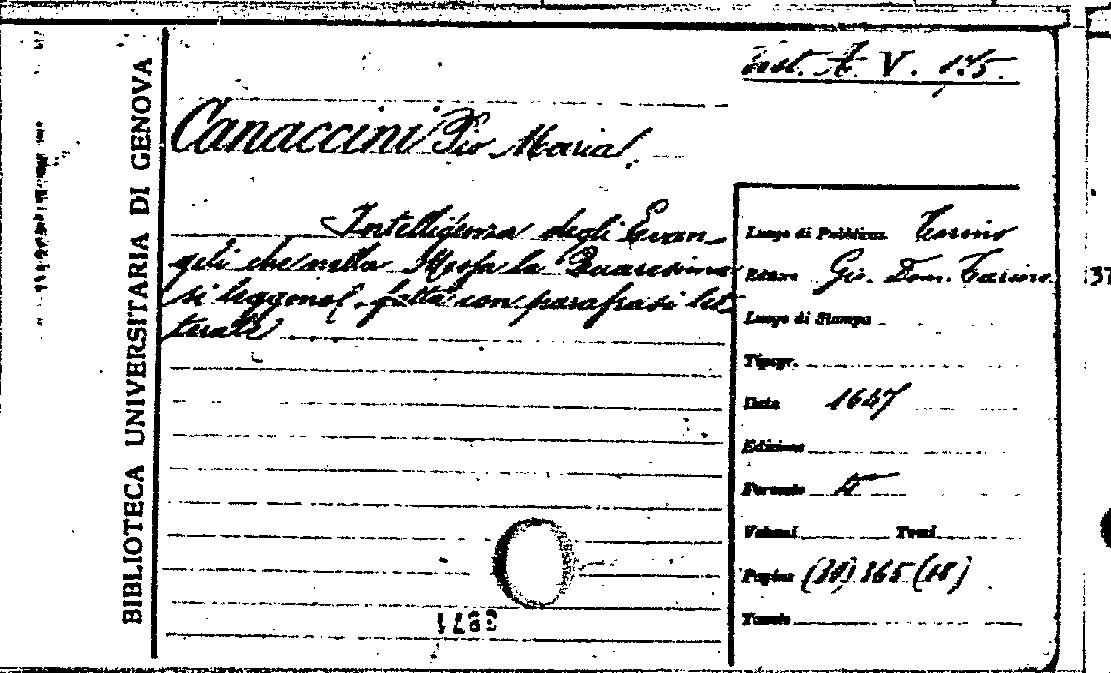 BIBLIOTECA UNIVERSITARIA DI GENOVA
A. V. 15.
Canaccini Pio Maria.
Intelligenza degli Evan-
geli che nella Messa la Quaresima
si leggono, fatta con parafrasi let-
terale
Luogo di Pubblicaz. Torino
Editore Gio. Dom. Tarino
Luogo di Stampa
Tipogr.
Data 1647
Edizione
Formato 4°
Volumi Tomi
Pagine 365 (18)
Tavole
3871
37